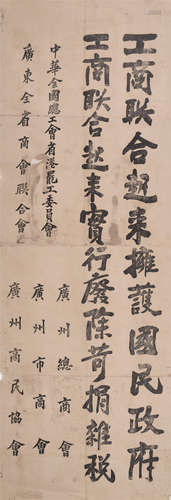 工商联合起来擁護國民政府
工商联合起来實行廢除苛捐雜税
中華全國總工會省港罷工委員會
廣東全省商會联合會
廣州總商會
廣州市商會
廣州商民協會